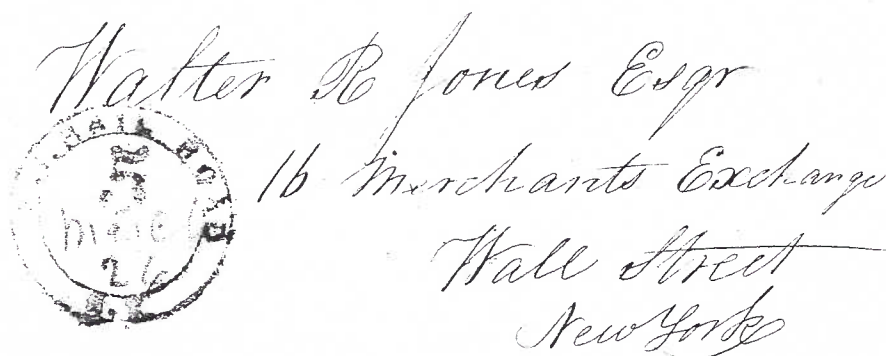 Walter R Jones Esqr
16 Merchants Exchange
Wall Street
New York
5